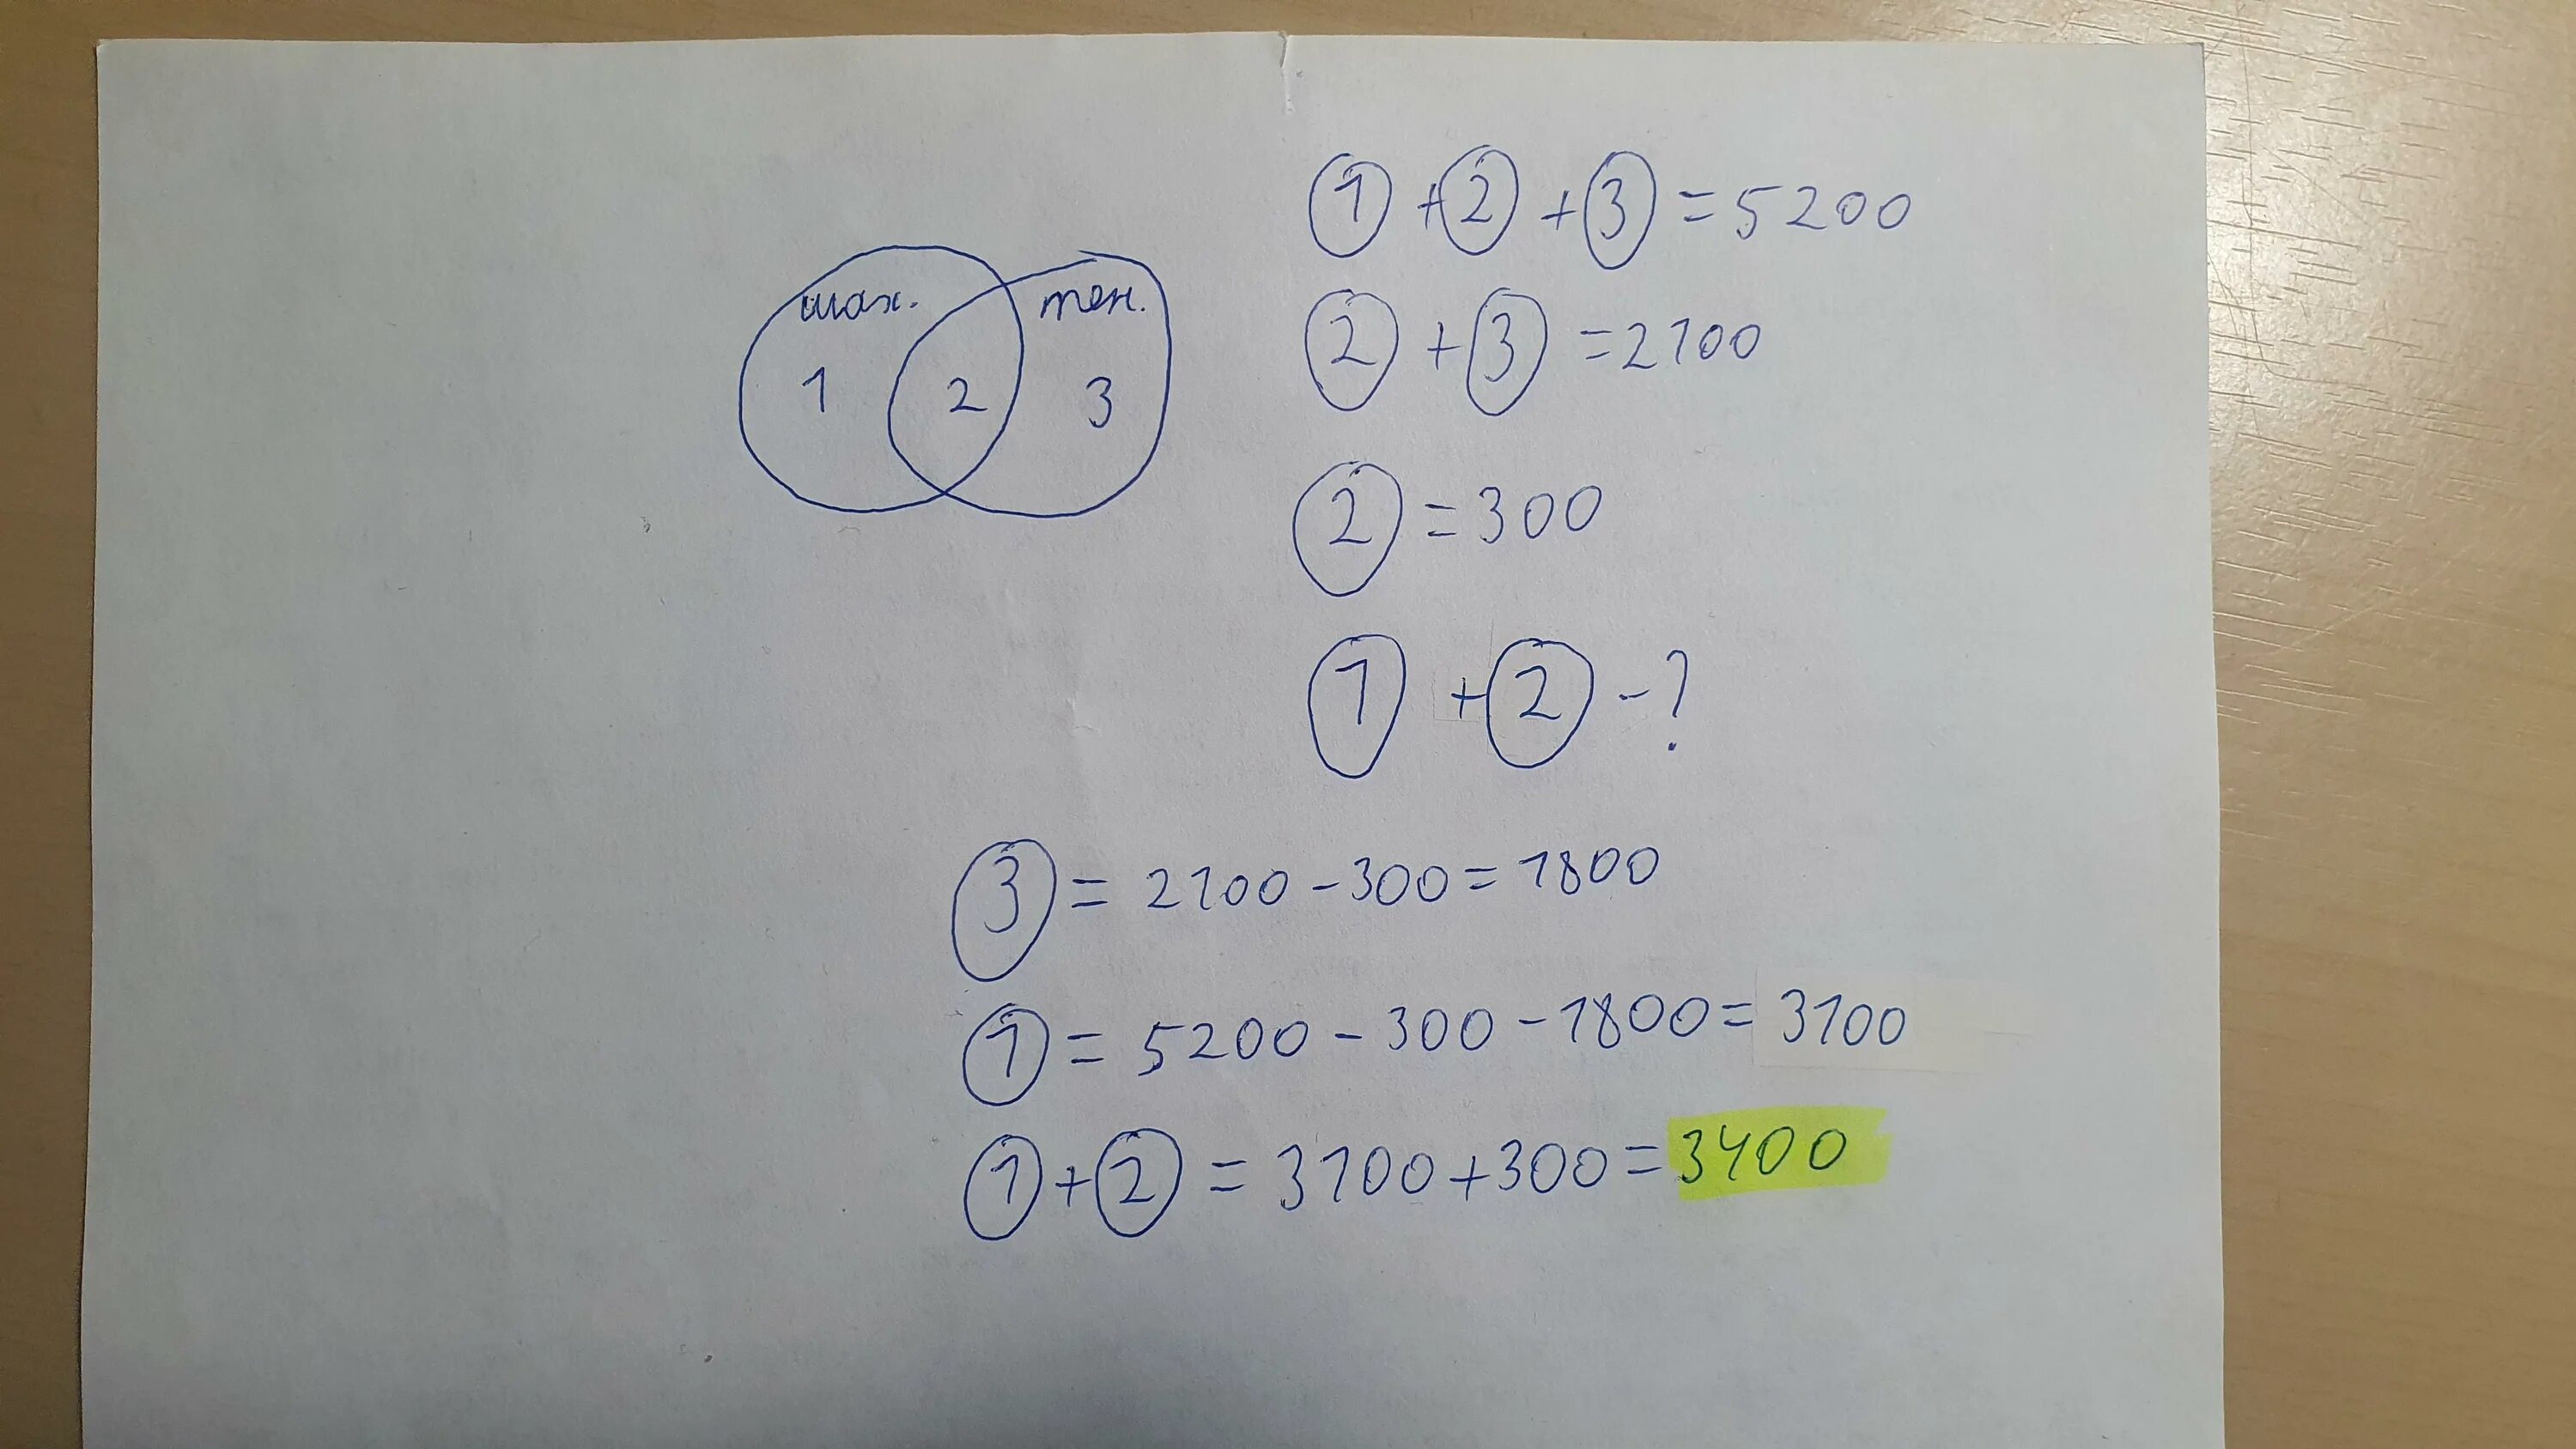 шах. тен.
1 2 3
1 + 2 + 3 = 5200
2 + 3 = 2100
2 = 300
1 + 2 - ?
3 = 2100 - 300 = 1800
1 = 5200 - 300 - 1800 = 3100
1 + 2 = 3100 + 300 = 3400